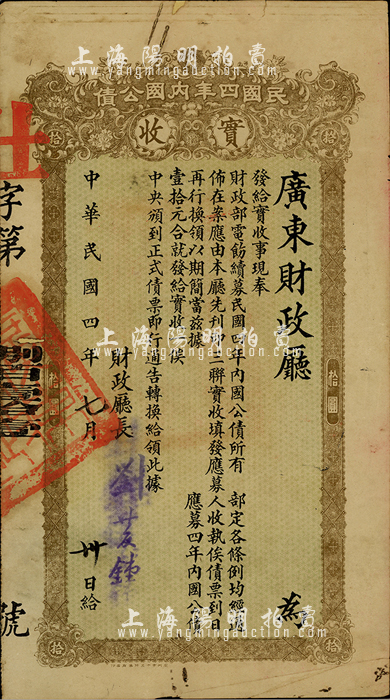 上海陽明拍賣
www.yangmingauction.com
民國四年內國公債
實收
拾
拾
廣東財政廳 為
發給實收事現奉
財政部電飭續募民國四年內國公債所有 部定各條例均經通
佈在案應由本廳先利印二聯實收填發應募人收執俟債票到日
再行換領以期簡當茲據 應募四年內國公債
壹拾元合就發給實收俟
中央頒到正式債票即行通告轉換給領此據
財政廳長
中華民國四年七月卅日給
字第
號
拾圓
拾圓
上海陽明拍賣
www.yangmingauction.com
拾
拾
上海陽明拍賣
www.yangmingauction.com